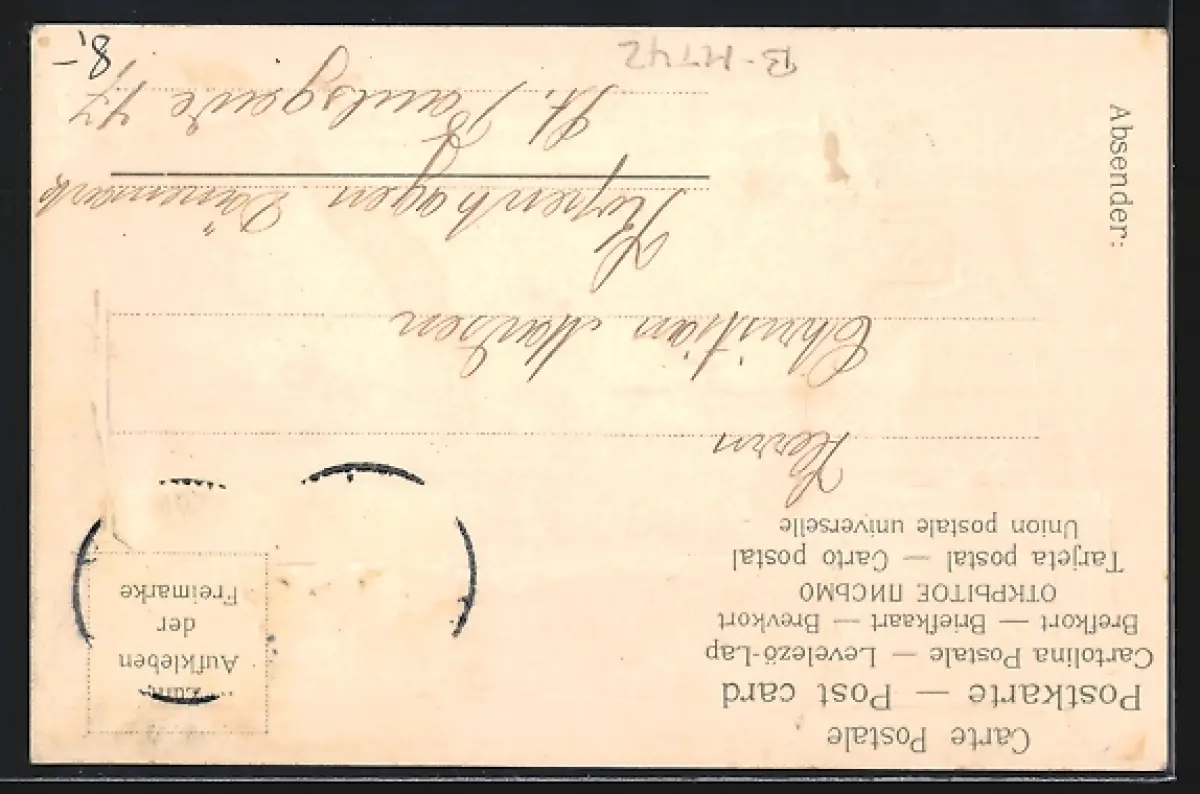 Carte Postale
Postkarte — Post card
Cartolina Postale — Levelező-Lap
Brefkort — Briefkaart — Brevkort
ОТКРЫТОЕ ПИСЬМО
Tarjeta postal — Carto postal
Union postale universelle
Zum
Aufkleben
der
Freimarke
Herrn
Christian Madsen
Kopenhagen Dänemark
St. Paulsgade 47
Absender:
B-MT42
8,-